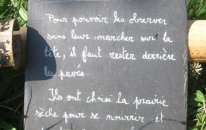 Pour pouvoir les observer
sans leur marcher sur la
tête, il faut rester derrière
les pavés.
Ils ont choisi la prairie
sèche pour se nourrir et